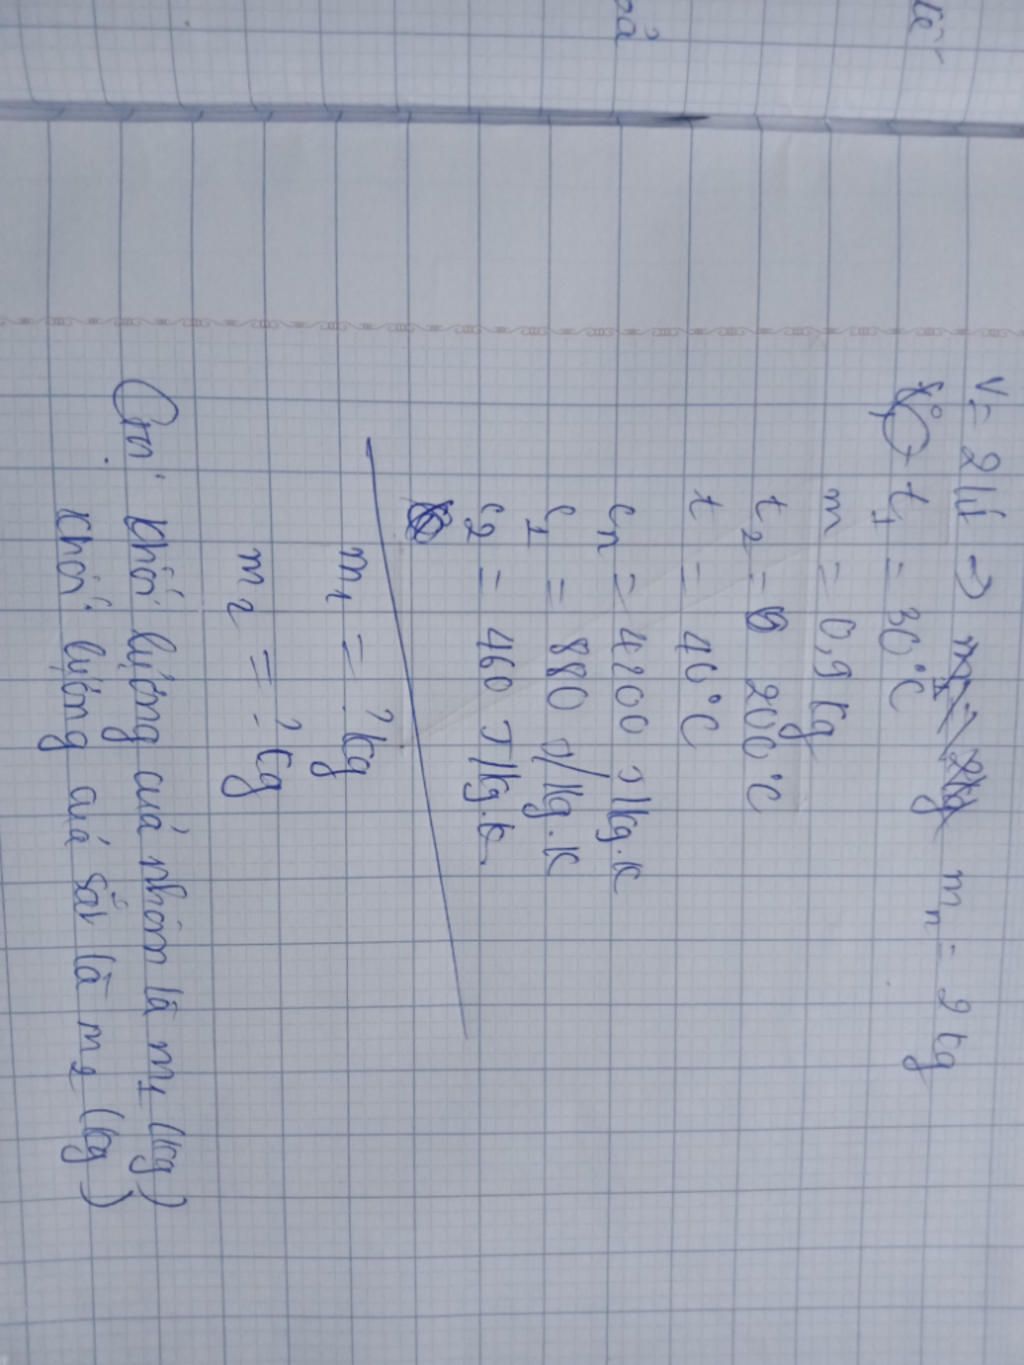 V = 2 lít => m₁ = 2kg mₙ = 2 kg
t₁ = 30°C
m = 0,9 kg
t₂ = 200°C
t = 40°C
cₙ = 4200 J/kg.K
c₁ = 880 J/kg.K
c₂ = 460 J/kg.K
m₁ = ? kg
m₂ = ? kg
Gọi khối lượng quả nhôm là m₁ (kg)
khối lượng quả sắt là m₂ (kg)